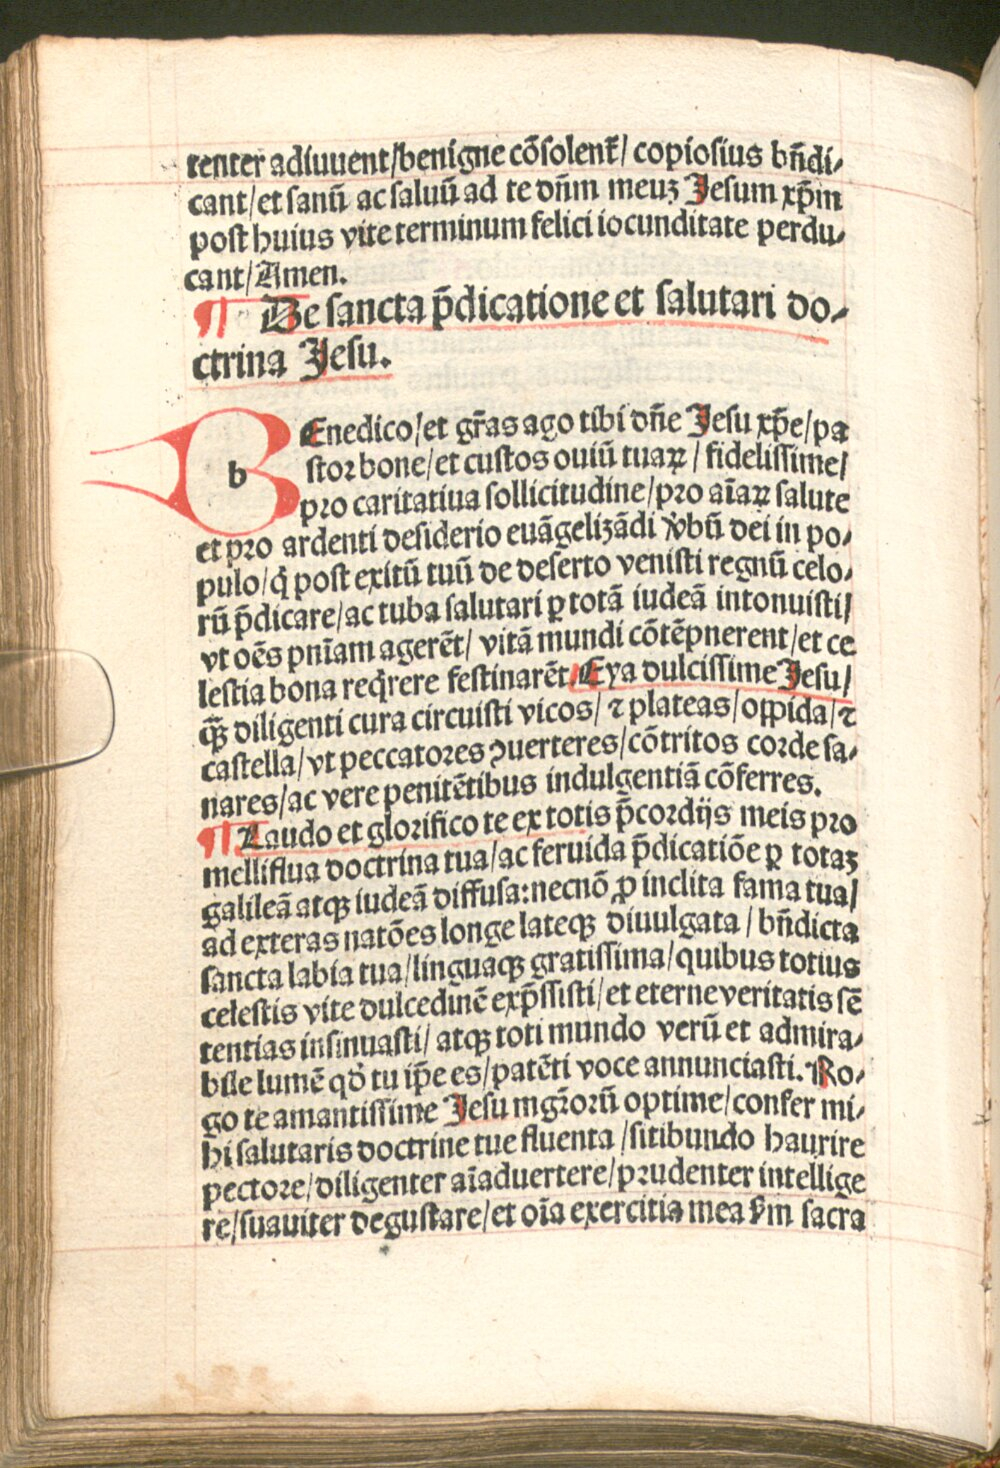 tenter adiuuent/benigne cõsolent᷑/ copiosius bñdi⸗
cant/et sanũ ac saluũ ad te dñm meuʒ Jesum xp̃m
post huius vite terminum felici iocunditate perdu⸗
cant/Amen.
¶ De sancta p̃dicatione et salutari do⸗
ctrina Jesu.
b
BEnedico/et gr̃as ago tibi dñe Jesu xp̃e/pa
stor bone/et custos ouiũ tuaꝝ/fidelissime/
pro caritatiua sollicitudine/pro aĩaꝝ salute
et pro ardenti desiderio euãgelizãdi v̾bũ dei in po⸗
pulo/q̇ post exitũ tuũ de deserto venisti regnũ celo⸗
rũ p̃dicare/ac tuba salutari ꝑ totã iudeã intonuisti/
vt oẽs pnĩam agerẽt/ vitã mundi cõtẽpnerent/et ce
lestia bona req̇rere festinarẽt. Eya dulcissime Jesu/
ꝙ̃ diligenti cura circuisti vicos/ ⁊ plateas/oꝑpida/⁊
castella/vt peccatores ꝯuerteres/cõtritos corde sa⸗
nares/ac vere penitẽtibus indulgentiã cõferres.
¶ Laudo et glorifico te ex totis p̃cordijs meis pro
melliflua doctrina tua/ac feruida p̃dicatiõe ꝑ totaʒ
galileã atqꝫ iudeã diffusa:necnõ ꝓ inclita fama tua/
ad exteras natões longe lateqꝫ diuulgata/bñdicta
sancta labia tua/linguaqꝫ gratissima/quibus totius
celestis vite dulcedinẽ exp̃ssisti/et eterne veritatis sẽ
tentias insinuasti/ atqꝫ toti mundo verũ et admira⸗
bile lumẽ qd̾ tu ip̃e es/patẽti voce annunciasti. Ro⸗
go te amantissime Jesu mgr̃orũ optime/confer mi⸗
hi salutaris doctrine tue fluenta /sitibundo haurire
pectore/diligenter aĩaduertere/prudenter intellige
re/suauiter degustare/et oĩa exercitia mea ẜm sacra